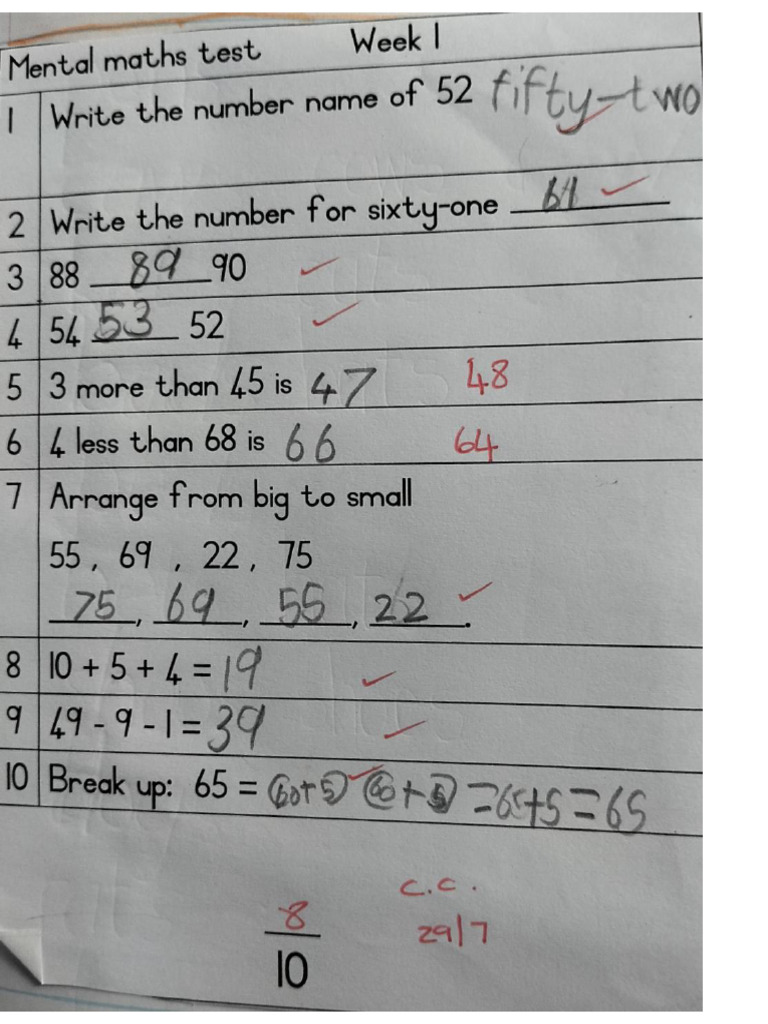 Mental maths test Week 1
1 Write the number name of 52 fifty-two
2 Write the number for sixty-one 61
3 88 89 90
4 54 53 52
5 3 more than 45 is 47 48
6 4 less than 68 is 66 64
7 Arrange from big to small
55, 69, 22, 75
75, 69, 55, 22.
8 10 + 5 + 4 = 19
9 49 - 9 - 1 = 39
10 Break up: 65 = 60+5 60+5 =65+5=65
C.C.
8
29/7
10